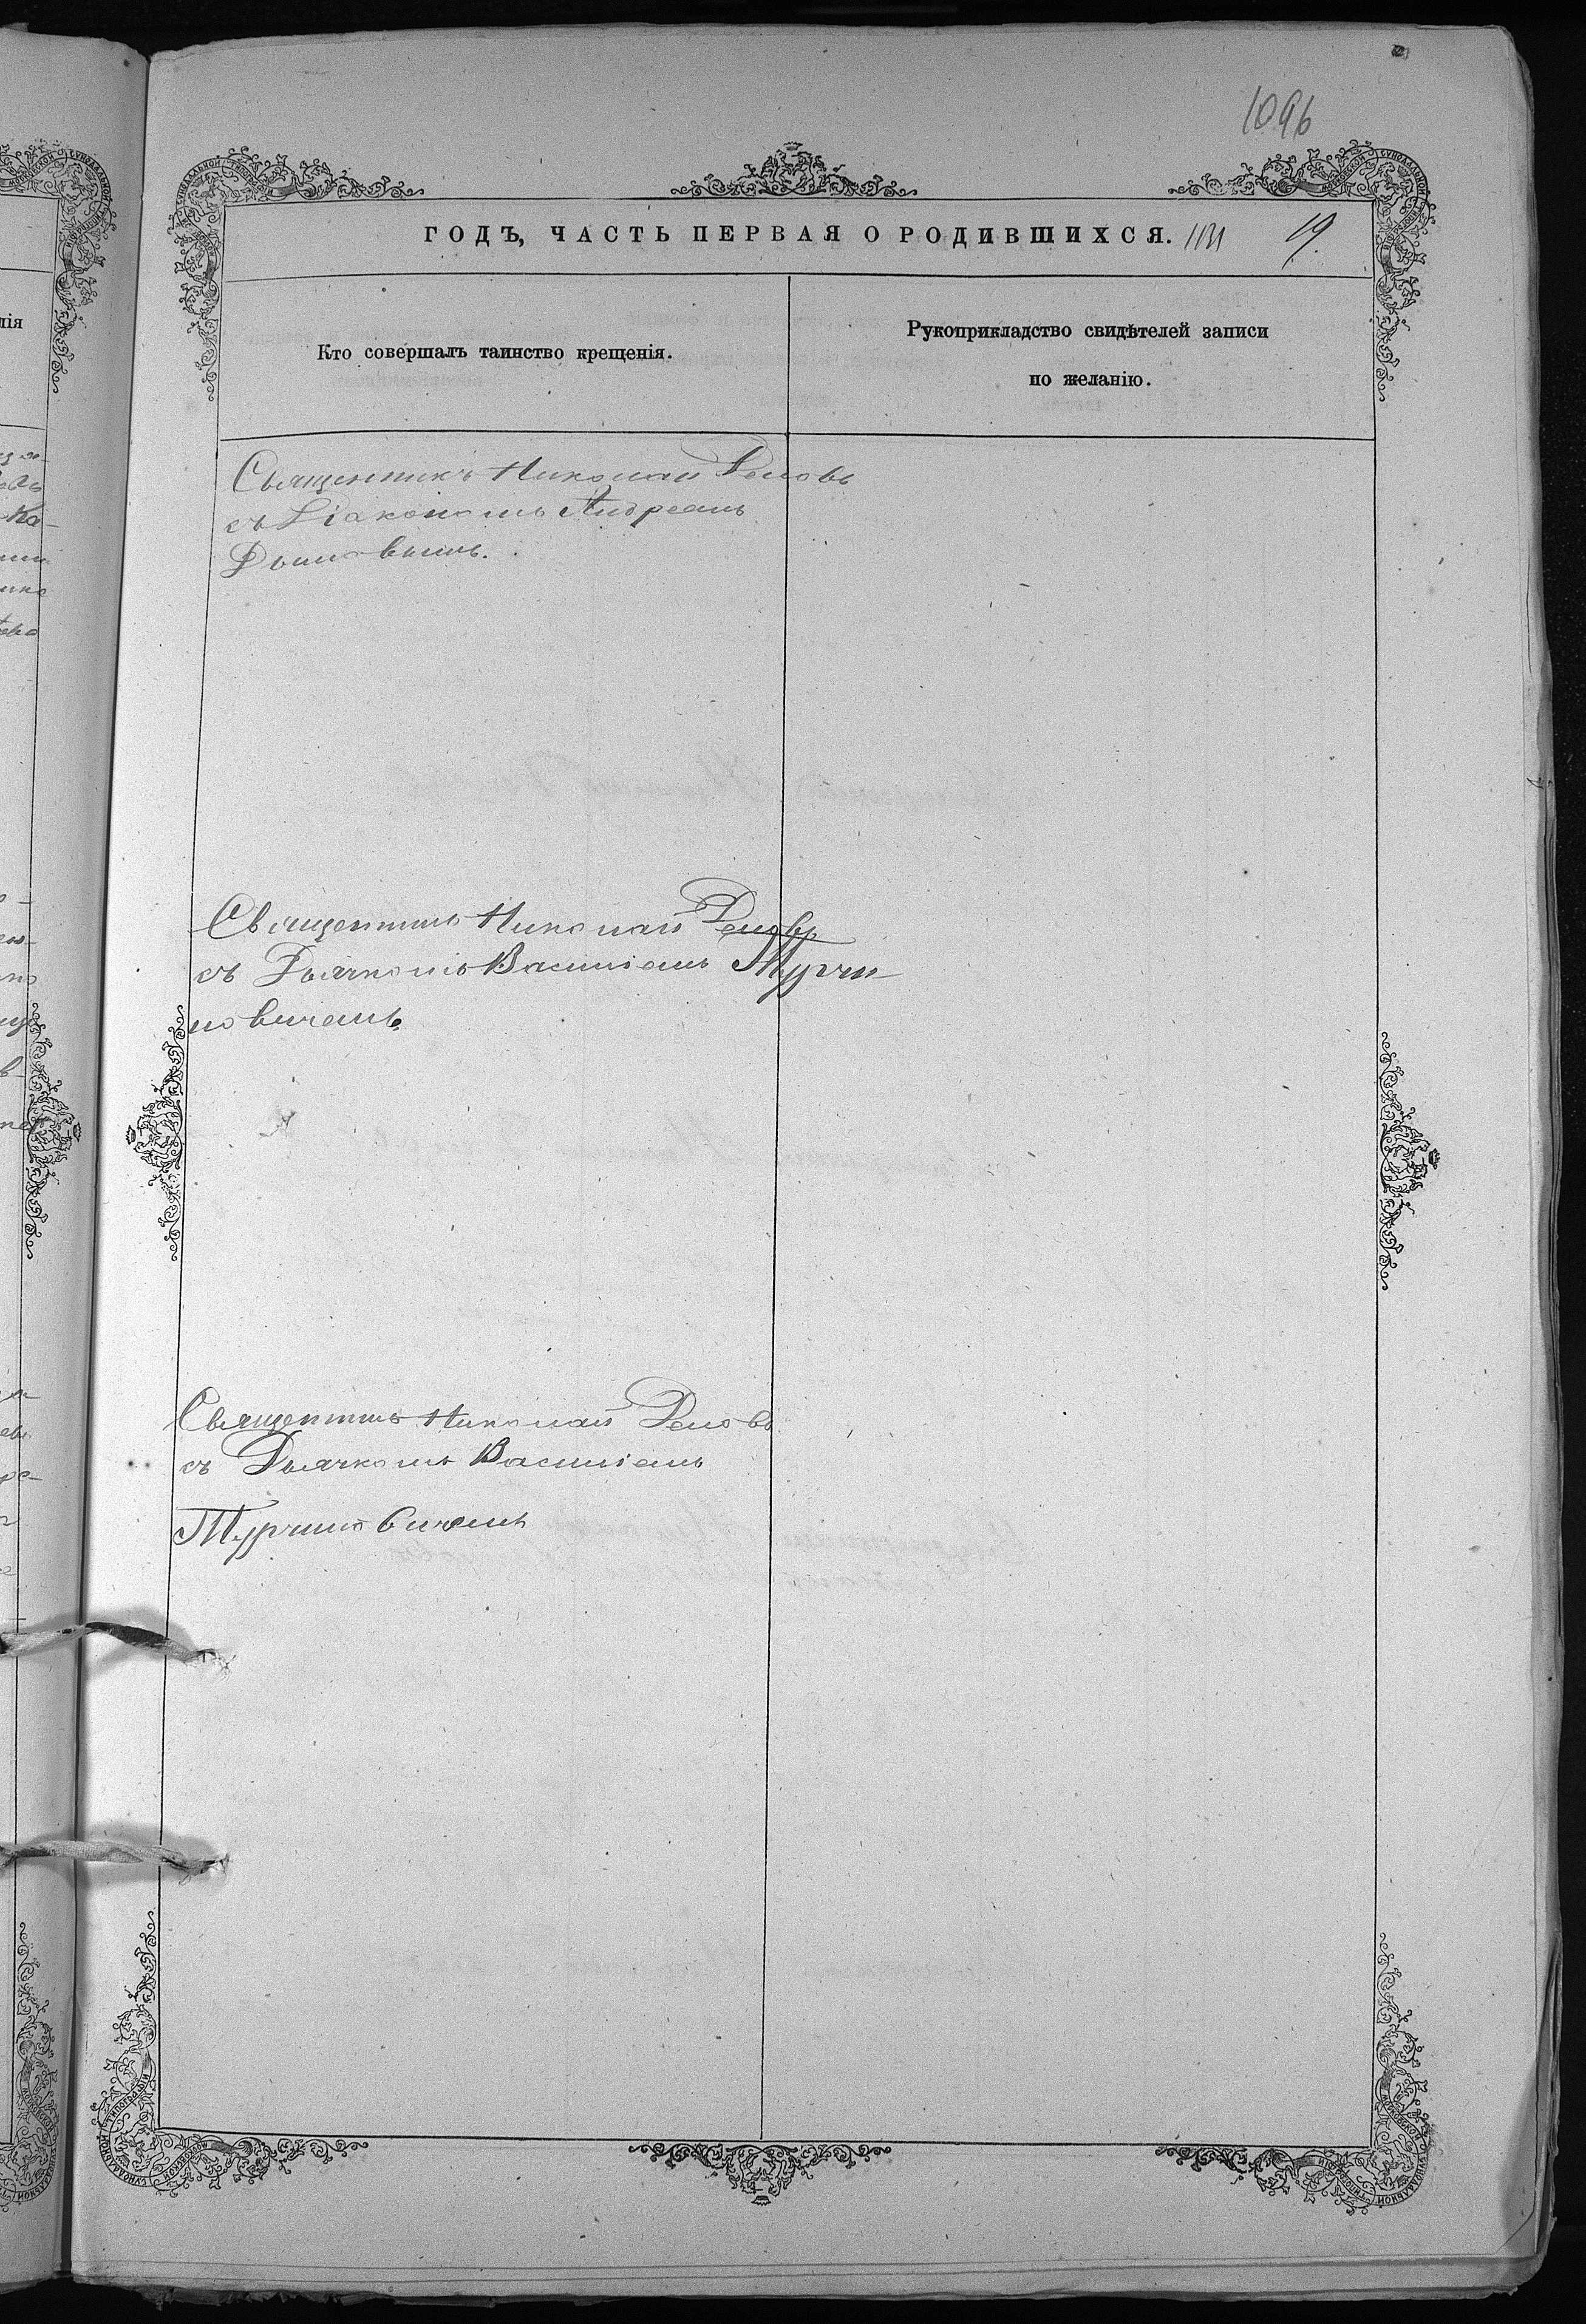 1096
ГОДЪ, ЧАСТЬ ПЕРВАЯ О РОДИВШИХСЯ.
19.
Кто совершалъ таинство крещенія.
Рукоприкладство свидѣтелей записи
по желанію.
Священникъ Николай
съ Діакономъ Андреемъ
Священникъ Николай
съ Дьячкомъ Василіемъ Турчи-
новичемъ
Священникъ Николай
съ Дьячкомъ Василіемъ
Турчиновичемъ